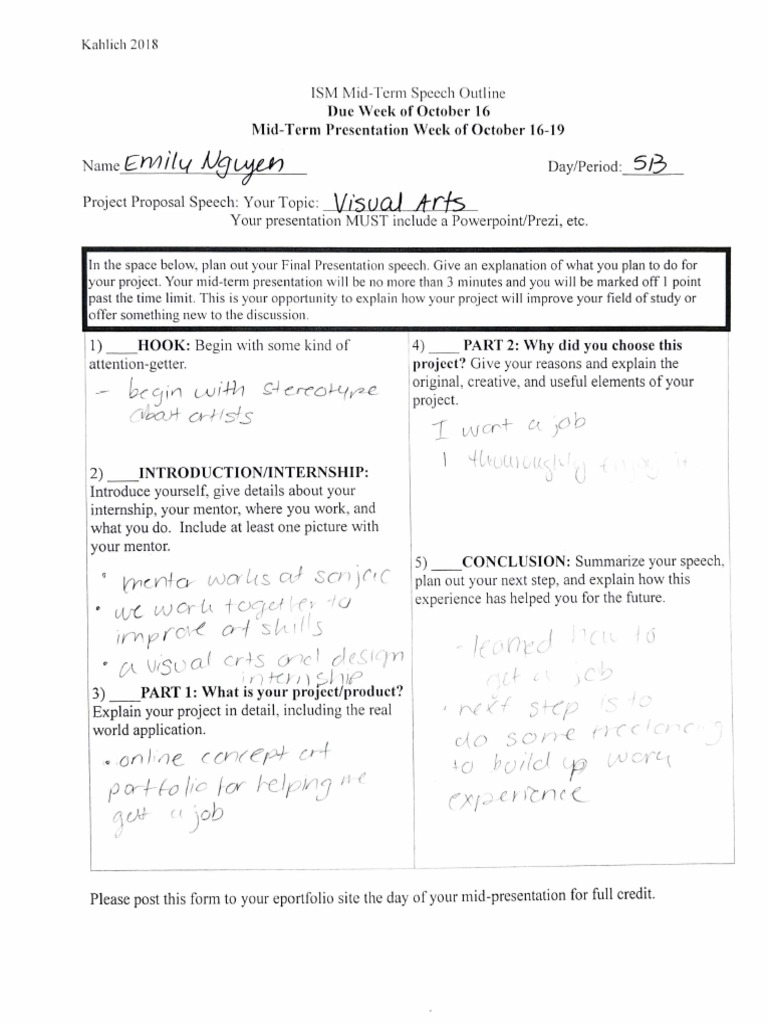 Kahlich 2018
ISM Mid-Term Speech Outline
Due Week of October 16
Mid-Term Presentation Week of October 16-19
Name Emily Nguyen Day/Period: 5B
Project Proposal Speech: Your Topic: Visual Arts
Your presentation MUST include a Powerpoint/Prezi, etc.
In the space below, plan out your Final Presentation speech. Give an explanation of what you plan to do for
your project. Your mid-term presentation will be no more than 3 minutes and you will be marked off 1 point
past the time limit. This is your opportunity to explain how your project will improve your field of study or
offer something new to the discussion.
1) ____HOOK: Begin with some kind of
attention-getter.
- begin with stereotype
about artists
2) ____INTRODUCTION/INTERNSHIP:
Introduce yourself, give details about your
internship, your mentor, where you work, and
what you do. Include at least one picture with
your mentor.
• mentor works at sanjac
• we work together to
improve art skills
• a visual arts and design
internship
3) ____PART 1: What is your project/product?
Explain your project in detail, including the real
world application.
• online concept art
portfolio for helping me
get a job
4) ____ PART 2: Why did you choose this
project? Give your reasons and explain the
original, creative, and useful elements of your
project.
I want a job
I thouroughly enjoy it
5) ____CONCLUSION: Summarize your speech,
plan out your next step, and explain how this
experience has helped you for the future.
- learned how to
get a job
• next step is to
do some freelancing
to build up work
experience
Please post this form to your eportfolio site the day of your mid-presentation for full credit.